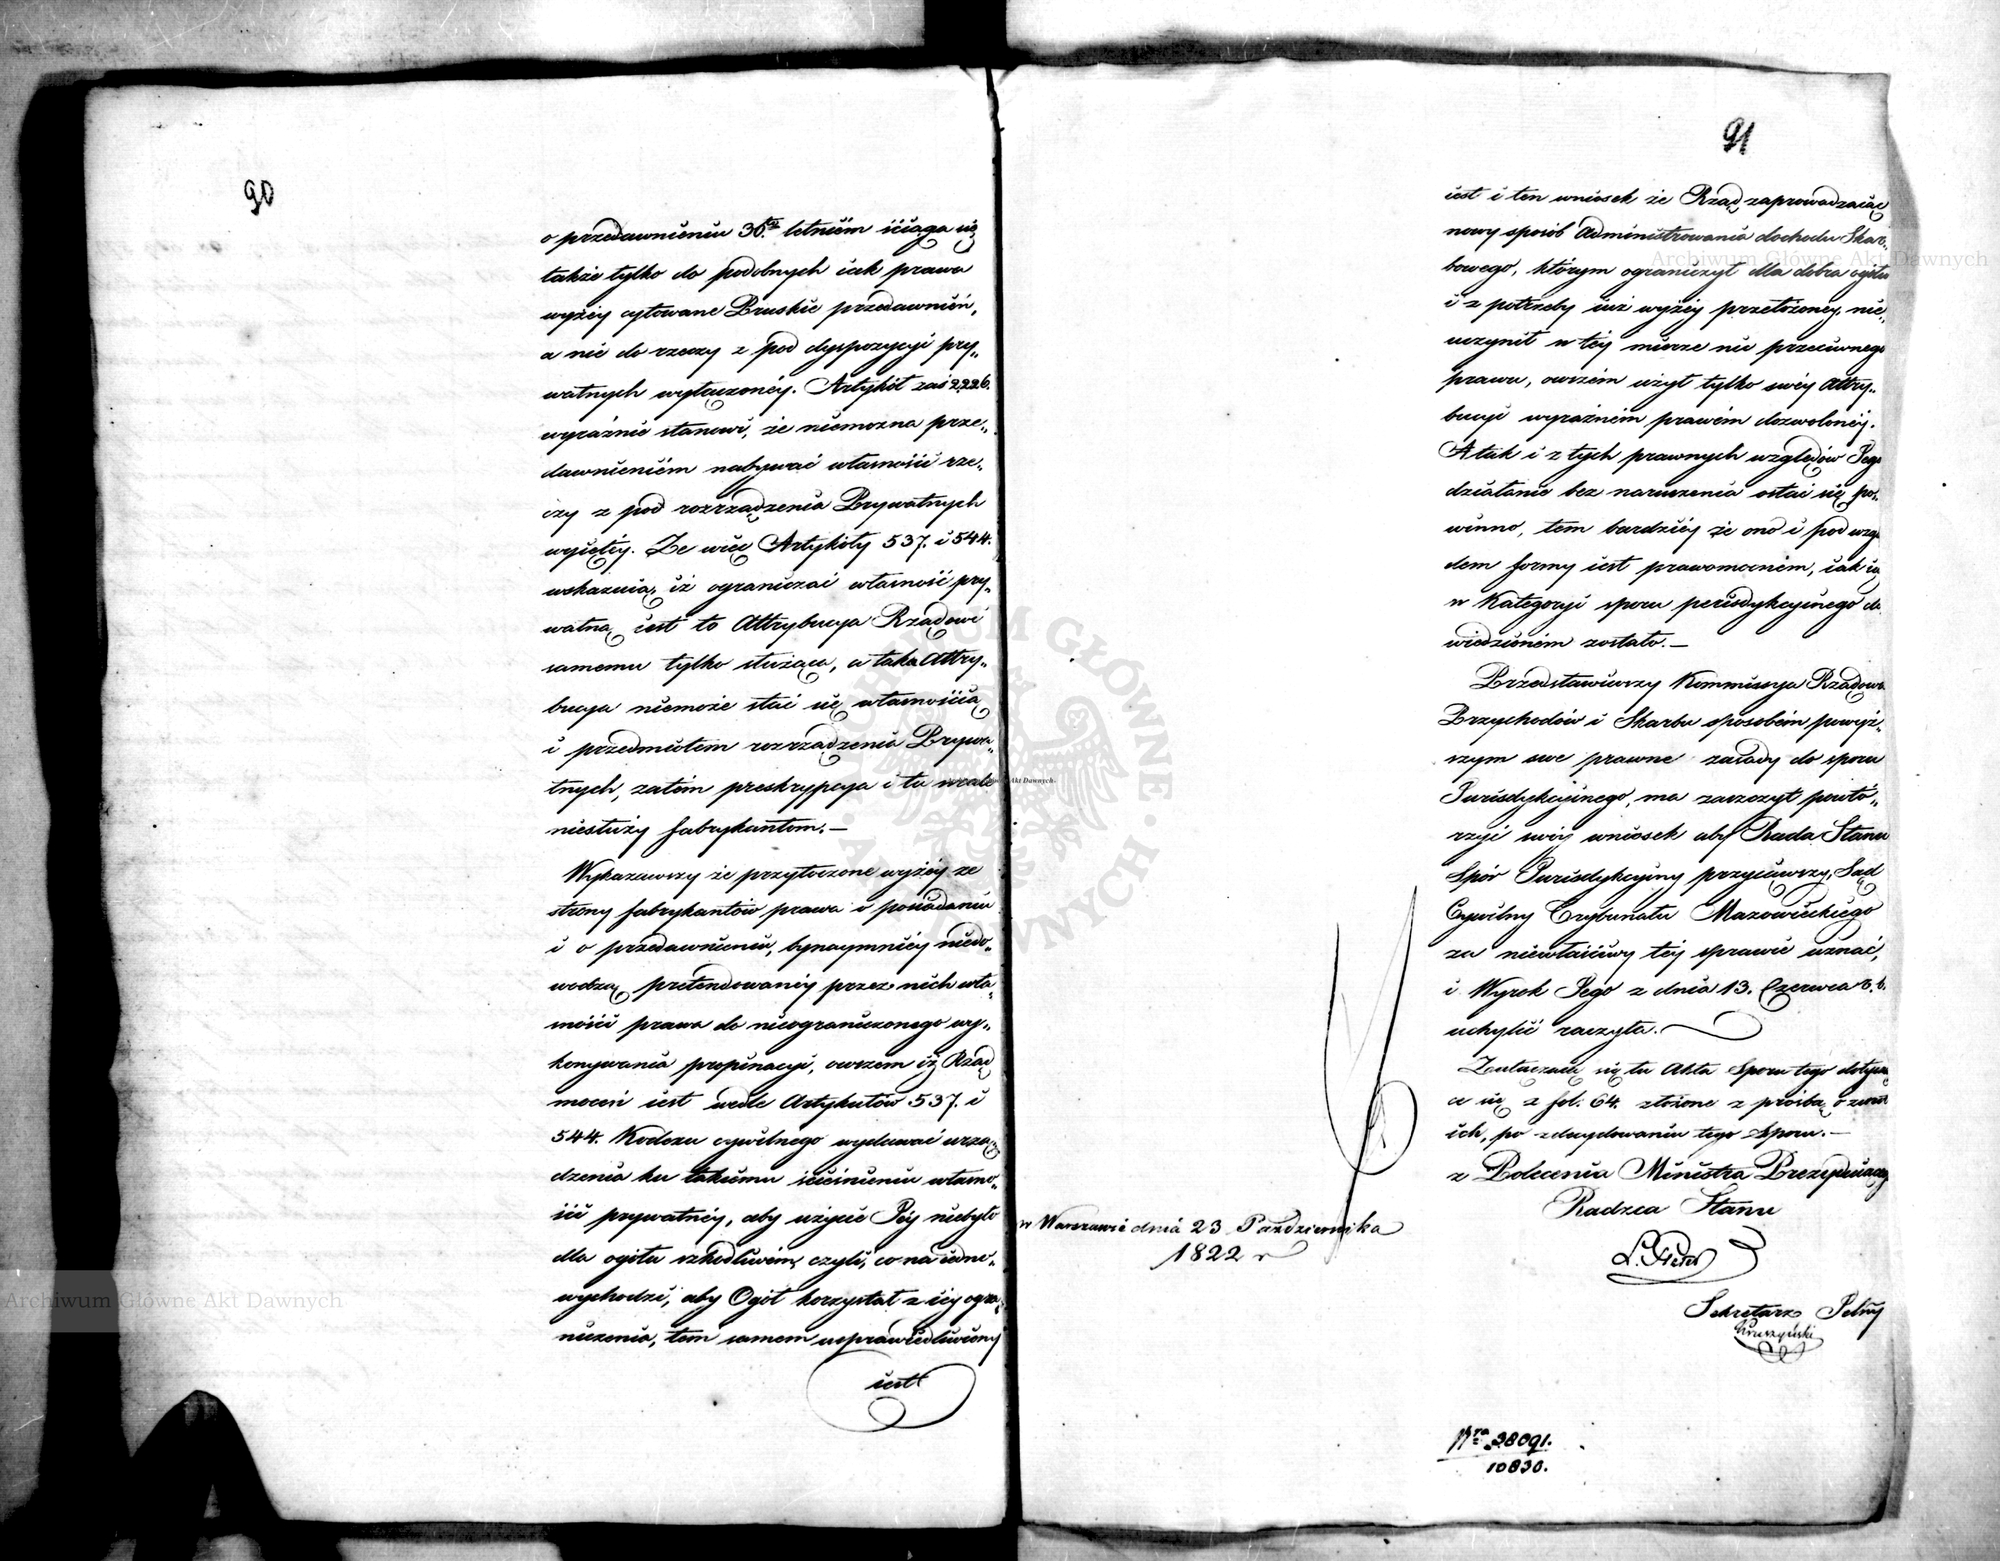 90
o przedawnieniu 30.to letniém ściąga się
także tylko do podobnych iak prawa
wyżéy cytowane Pruskie przedawnień,
a nie do rzeczy z pod dyspozycyi pry„
watnych wyłączonéy. Artykół zaś 2226.
wyraźnie stanowi, że niemożna prze„
dawnieniém nabywać własność rze„
czy z pod rozrządzenia Prywatnych
wyiętéy. Że więc Artykóły 537. i 544.
wskazuią, iż ograniczać własność pry„
watną iest to Attrybucya Rządowi
samemu tylko służąca, a taka Attry„
bucya niemoże stać się własnością
i przedmiotem rozrządzenia Prywa„
tnych, zatém preskrypcya i tu wcale
niesłuży fabrykantom.—
Wykazawszy że przytoczone wyżéy ze
strony fabrykantów prawa o posiadaniu
i o przedawnieniu, bynaymniéy niedo„
wodzą pretendowanéy przez nich wła„
sności prawa do nieograniczonego wy„
konywania propinacyi, owszem iż Rząd
mocen iest wedle Artykułów 537. i
544. Kodexu cywilnego wydawać urzą„
dzenia ku takiemu ścieśnieniu własno„
ści prywatnéy, aby użycie Jéy niebyło
dla ogółu szkodliwém, czyli, co na iedno„
wychodzi, aby Ogół korzystał z iéy ogra„
niczenia, tém samém usprawiedliwiony
iest
91
iest i ten wniosek że Rząd zaprowadzaiąc
nowy sposób Administrowania dochodu Skar„
bowego, którym ograniczył dla dobra ogółu
i z potrzeby iuż wyżéy przełożonéy, nie„
uczynił w téy mierze nic przeciwnego
prawu, owszém użył tylko swéy Attry„
bucyi wyraźném prawém dozwolonéy.
A tak i z tych prawnych względów Jego
działanie bez naruszenia ostać się po„
winno, tém bardziéy że ono i pod wzglę
dem formy iest prawomocném, iak to
w Kategoryi sporu jurisdykcyinego do
wiedzioném zostało.—
Przedstawiwszy Kommissya Rządowa
Przychodów i Skarbu sposobém powyż„
szym swe prawne zasady do sporu
Jurisdykcyinego, ma zaszczyt powtó„
rzyć swóy wniosek aby Rada Stanu
Spór Jurisdykcyiny przyiąwszy, Sąd
Cywilny Trybunału Mazowieckiego
za niewłaściwy téy sprawie uznać,
i Wyrok Jego z dnia 13. Czerwca r. b.
uchylić raczyła.
Załączaią się tu Akta Sporu tego dotyczą
ce się z fol: 64. złożone z prośbą o zwrot
ich, po zdecydowaniu tego Sporu.—
z Polecenia Ministra Prezyduiącego
Radzca Stanu
Sekretarz Jelny
Kruszyński
w Warszawie dnia 23 Października
1822 r
Nro 38091.
10830.
Archiwum Główne Akt Dawnych
Archiwum Główne Akt Dawnych
Archiwum Główne Akt Dawnych
ARCHIWUM GŁÓWNE AKT DAWNYCH